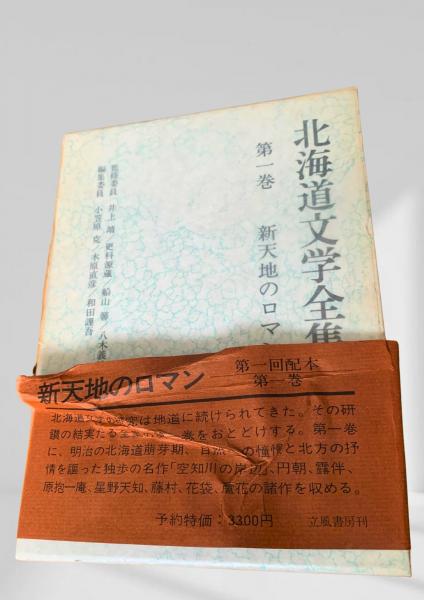 北海道文学全集
第一巻 新天地のロマン
監修委員 井上 靖/更科源蔵 船山 馨/八木義
編集委員 小笠原 克/木原直彦/和田謹吾
新天地のロマン 第一回配本
第一巻
北海道文学の は地道に続けられてきた。その研
鑽の結実たる全 巻をおとどけする。第一巻
に、明治の北海道萌芽期、自然への憧憬と北方の抒
情を謳った独歩の名作「空知川の岸辺」、円朝、露伴、
原抱一庵、星野天知、藤村、花袋、蘆花の諸作を収める。
予約特価：3300円 立風書房刊